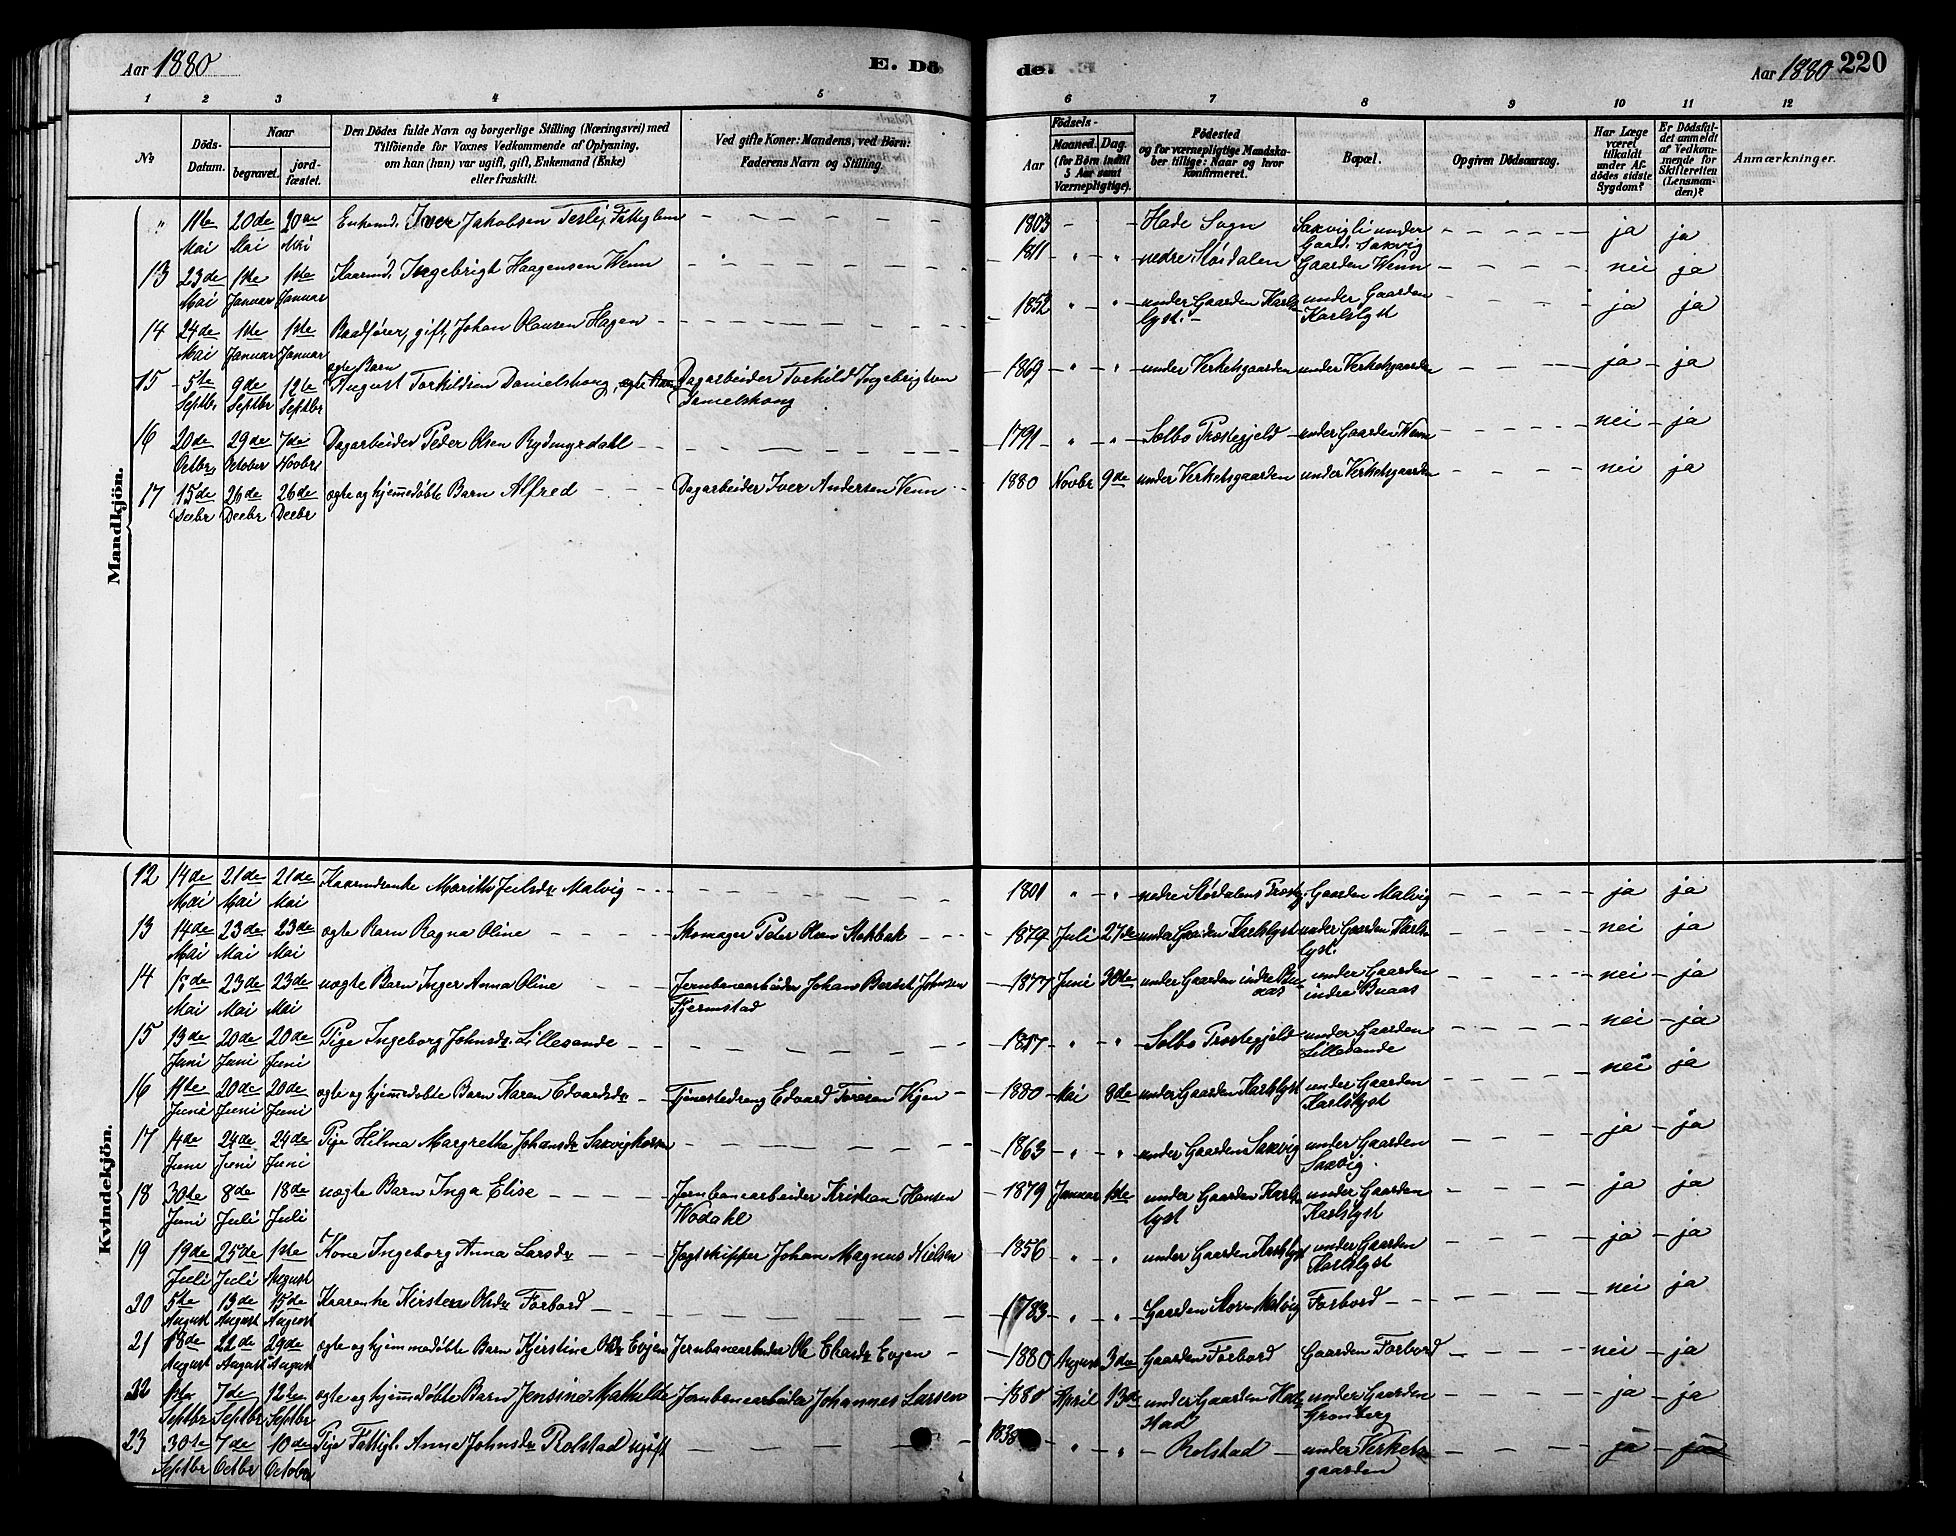 Aar 1880
E. Dö
de.
Aar 1880 220
1 2 3 4 5 6 7 8 9 10 11 12
No
Döds-Datum.
Naar
begravet.
jordfæstet.
Den Dödes fulde Navn og borgerlige Stilling (Næringsvei) med
Tilföiende for Voxnes Vedkommende af Oplysning,
om han (hun) var ugift, gift, Enkemand (Enke)
eller fraskilt.
Ved gifte Koner: Mandens, ved Börn:
Faderens Navn og Stilling.
Födsels-
Aar
Maaned. Dag.
(for Börn indtil
5 Aar samt
Værnepligtige).
Födested
og for værnepligtige Mandskaber tillige: Naar og hvor
Konfirmeret.
Bopæl.
Opgiven Dödsaarsag.
Har Læge
været
tilkaldt
under Afdödes sidste
Sygdom?
Er Dödsfaldet anmeldt
af Vedkommende for
Skifteretten
(Lensmanden)?
Anmærkninger.
Mandkjön.
" 11te Mai 20de Mai 20de Mai Enkemd. Iver Jakobsen Teslie, Fattiglem 1803 - - Hade Sogn Saxvigli under Gaard. Saxvig ja ja
13 23de Mai 1ste Januar 1ste Januar Kaarmd. Ingebrigt Haagensen Wenn 1811 " " nedre Stördalen Gaarden Wenn nei ja
14 24de Mai 1ste Januar 1ste Januar Baadfører, gift, Johan Olausen Hagen 1852 " " under Gaarden Karlslyst. under Gaarden Karlslyst ja ja
15 5te Septbr. 9de Septbr 12te Septbr ægte Barn August Torkildsen Danielshaug Dagarbeider Torkild Ingebrigtsen Danielshaug 1869 " " under Verketsgaarden under Verketsgaarden ja ja
16 20de Octbr. 29de October 7de Novbr. Dagarbeider Peder Olsen Rydmyrdahl 1791 " " Selbo Præstegjeld under Gaarden Wenn nei ja
17 15de Decbr 26de Decbr 26de Decbr ægte og hjemmedøbte Barn Alfred Dagarbeider Iver Andersen Venn 1880 Novbr 9de under Verketsgaarden under Verketsgaarden nei ja
Kvindekjön.
12 14de Mai 21de Mai 21de Mai Kaarmdenke Marith Julsdr Malvig 1801 " " nedre Stördalens Prostg. Gaarden Malvig ja ja
13 14de Mai 23de Mai 23de Mai ægte Barn Ragna Oline Skomager Peter Olsen Stokbak 1879 Juli 27de under Gaarden Karlslyst under Gaarden Karlslyst. nei ja
14 Mai 23de Mai 23de Mai uægte Barn Inger Anna Oline Jernbanearbeider Johan Johnsen Fjermstad 1877 Juni 30de under Gaarden indre Buaas under Gaarden indre Buaas nei ja
15 13de Juni 20de Juni 20de Juni Pige Ingeborg Johnsdr. Lillesande 1857 " " Selbo Prostegjeld under Gaarden Lillesande nei ja
16 11te Juni 20de Juni 20de Juni ægte og hjemmedøbte Barn Karen Edvardsdr Tjenestedreng Edvard Toresen Kjen 1880 Mai 8de under Gaarden Karlslyst under Gaarden Karlslyst nei ja
17 14de Juni 24de Juni 24de Juni Pige Hilma Margrethe Johansdr 1863 " " under Gaarden Saxvig under Gaarden Saxvig. ja ja
18 30te Juni 8de Juli 18de Juli uægte Barn Inga Elise Jernbanearbeider Kristian Hansen Wodahl 1879 Januar 1ste under Gaarden Karlslyst under Gaarden Karlslyst ja ja
19 19de Juli 25de Juli 1ste August Kone Ingeborg Anna Larsdr Jagtskipper Johan Magnus Nielsen 1856 " " under Gaarden Karlslyst under Gaarden Karlslyst ja ja
20 5te August 13de August 15de August Kaarenke Kirsten Olsdr Forbord 1783 " " Gaarden Store Malvig Forbord nei ja
21 18de August 22de August 29de August ægte og hjemmedøbte Barn Kjerstine Olsdr Evjen Jernbanearbeider Ole Evjen 1880 August 3die Gaarden Forbord Gaarden Forbord nei ja
22 1ste Septbr 7de Septbr 12te Septbr ægte og hjemmedøbte Barn Jensine Mathilde Jernbanearbeider Johannes Larsen 1880 April 13de under Gaarden under Gaarden Grønberg ja ja
23 30te Septbr 7de Octbr 10de October Pige Fattigl. Anna Johnsdr Rolstad ugift 1838 " " Rolstad under Verketsgaarden ja ja